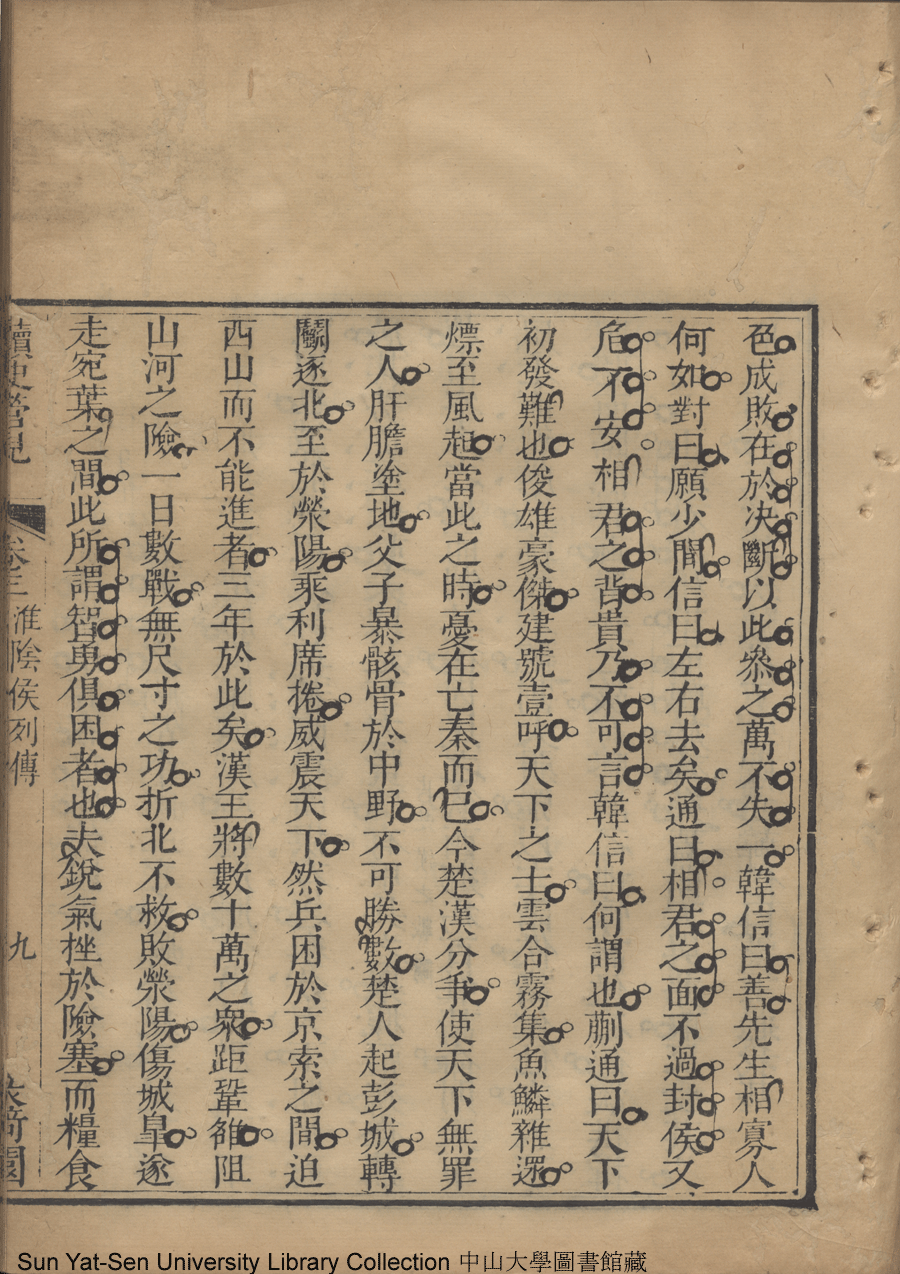 色成敗在於决斷以此叅之萬不失一韓信曰善先生相寡人
何如對曰願少間信曰左右去矣通曰相君之面不過封侯又
危不安相君之背貴乃不可言韓信曰何謂也蒯通曰天下
初發難也俊雄豪傑建號壹呼天下之士雲合霧集魚鱗雜遝
熛至風起當此之時憂在亡秦而已今楚漢分爭使天下無罪
之人肝膽塗地父子暴骸骨於中野不可勝數楚人起彭城轉
鬬逐北至於滎陽乘利席捲威震天下然兵困於京索之間迫
西山而不能進者三年於此矣漢王將數十萬之衆距鞏雒阻
山河之險一日數戰無尺寸之功折北不救敗滎陽傷城臯遂
走宛葉之間此所謂智勇俱困者也夫銳氣挫於險塞而糧食
卷三 淮陰侯列傳 九
Sun Yat-Sen University Library Collection 中山大學圖書館藏